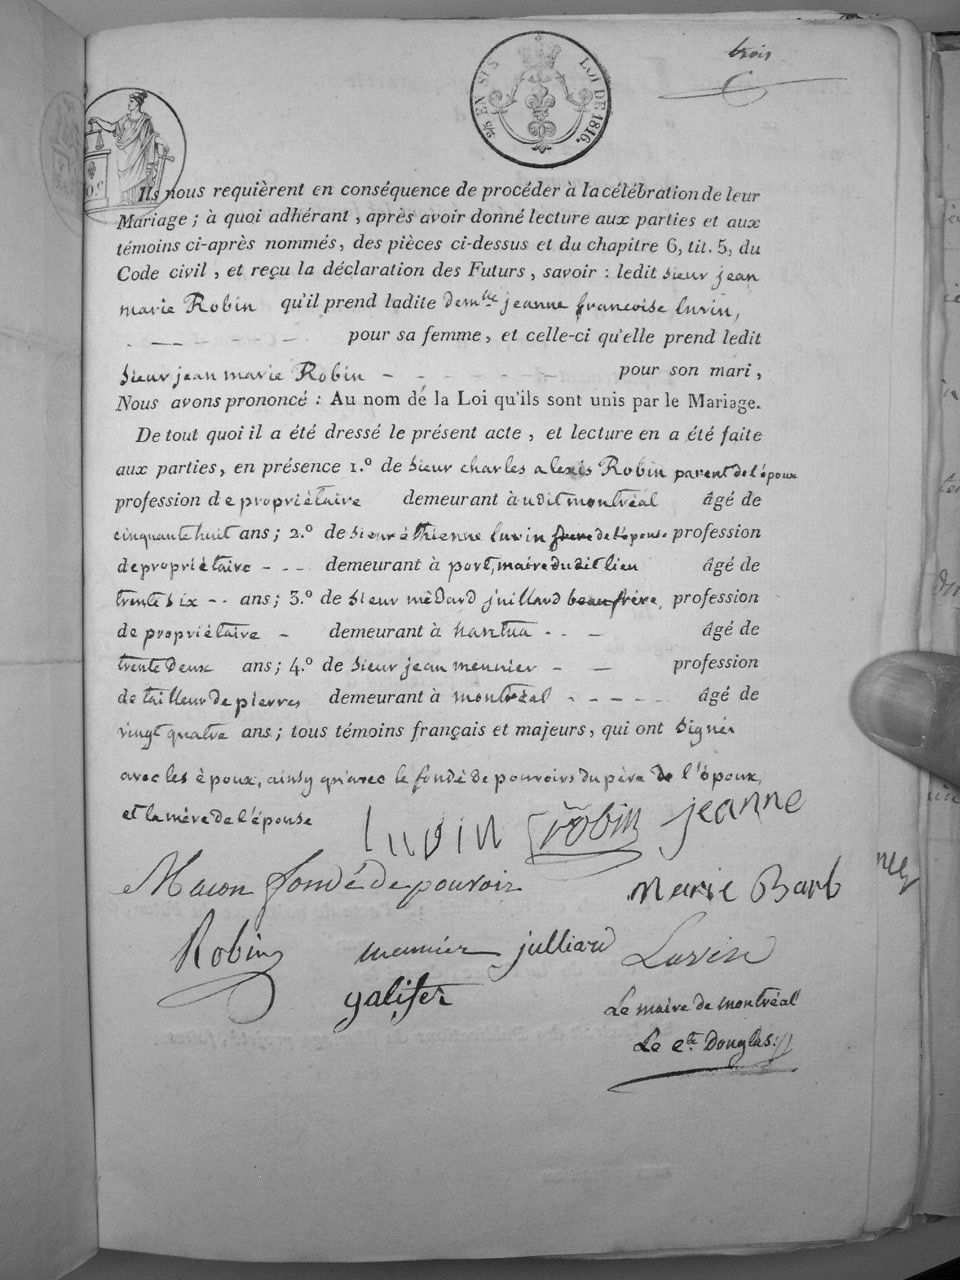 trois
EN SUS
LOI DE 1816.
Ils nous requièrent en conséquence de procéder à la célébration de leur
Mariage ; à quoi adhérant , après avoir donné lecture aux parties et aux
témoins ci-après nommés, des pièces ci-dessus et du chapitre 6, tit. 5, du
Code civil , et reçu la déclaration des Futurs , savoir : ledit sieur jean
marie Robin qu'il prend ladite demlle jeanne francoise luvin,
pour sa femme, et celle-ci qu'elle prend ledit
sieur jean marie Robin - - - - - - pour son mari ,
Nous avons prononcé : Au nom de la Loi qu'ils sont unis par le Mariage.
De tout quoi il a été dressé le présent acte , et lecture en a été faite
aux parties, en présence 1.º de sieur charles alexis Robin parent de l'époux
profession de propriètaire demeurant à udit montréal âgé de
cinquante huit ans ; 2.º de sieur éthienne luvin frere de l'épouse profession
de propriétaire - - - demeurant à port, maire du dit lieu âgé de
trente six - - ans ; 3.º de sieur mèdard juillard beaufrére, profession
de propriétaire - demeurant à nantua - - - âgé de
trente deux ans ; 4.º de sieur jean meunier - - profession
de tailleur de pierres demeurant à montréal - - - - - âgé de
vingt quatre ans ; tous témoins français et majeurs, qui ont signés
avec les époux, ainsy qu'avec le fondé de pouvoirs du père de l'époux,
et la mère de l'épouse
luvin Robin jeanne
Macon fondé de pouvoir Marie Barb
Robin meunier julliard Luvin
galifer
Le maire de montréal
Le cte Douglas